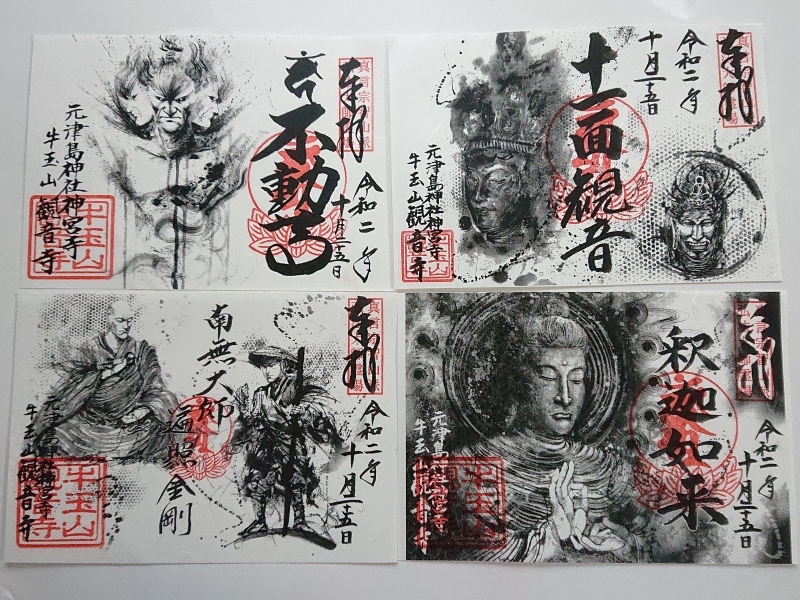 奉拝
令和二年
十月二十五日
不動
元津島神社神宮寺
牛玉山観音寺
牛玉山
奉拝
令和二年
十月二十五日
十一面観音
元津島神社神宮寺
牛玉山観音寺
奉拝
令和二年
十月二十五日
南無大師
遍照金剛
元津島神社神宮寺
牛玉山観音寺
牛玉山
奉拝
令和二年
十月二十五日
釈迦如来
元津島神社神宮寺
牛玉山観音寺
牛玉山